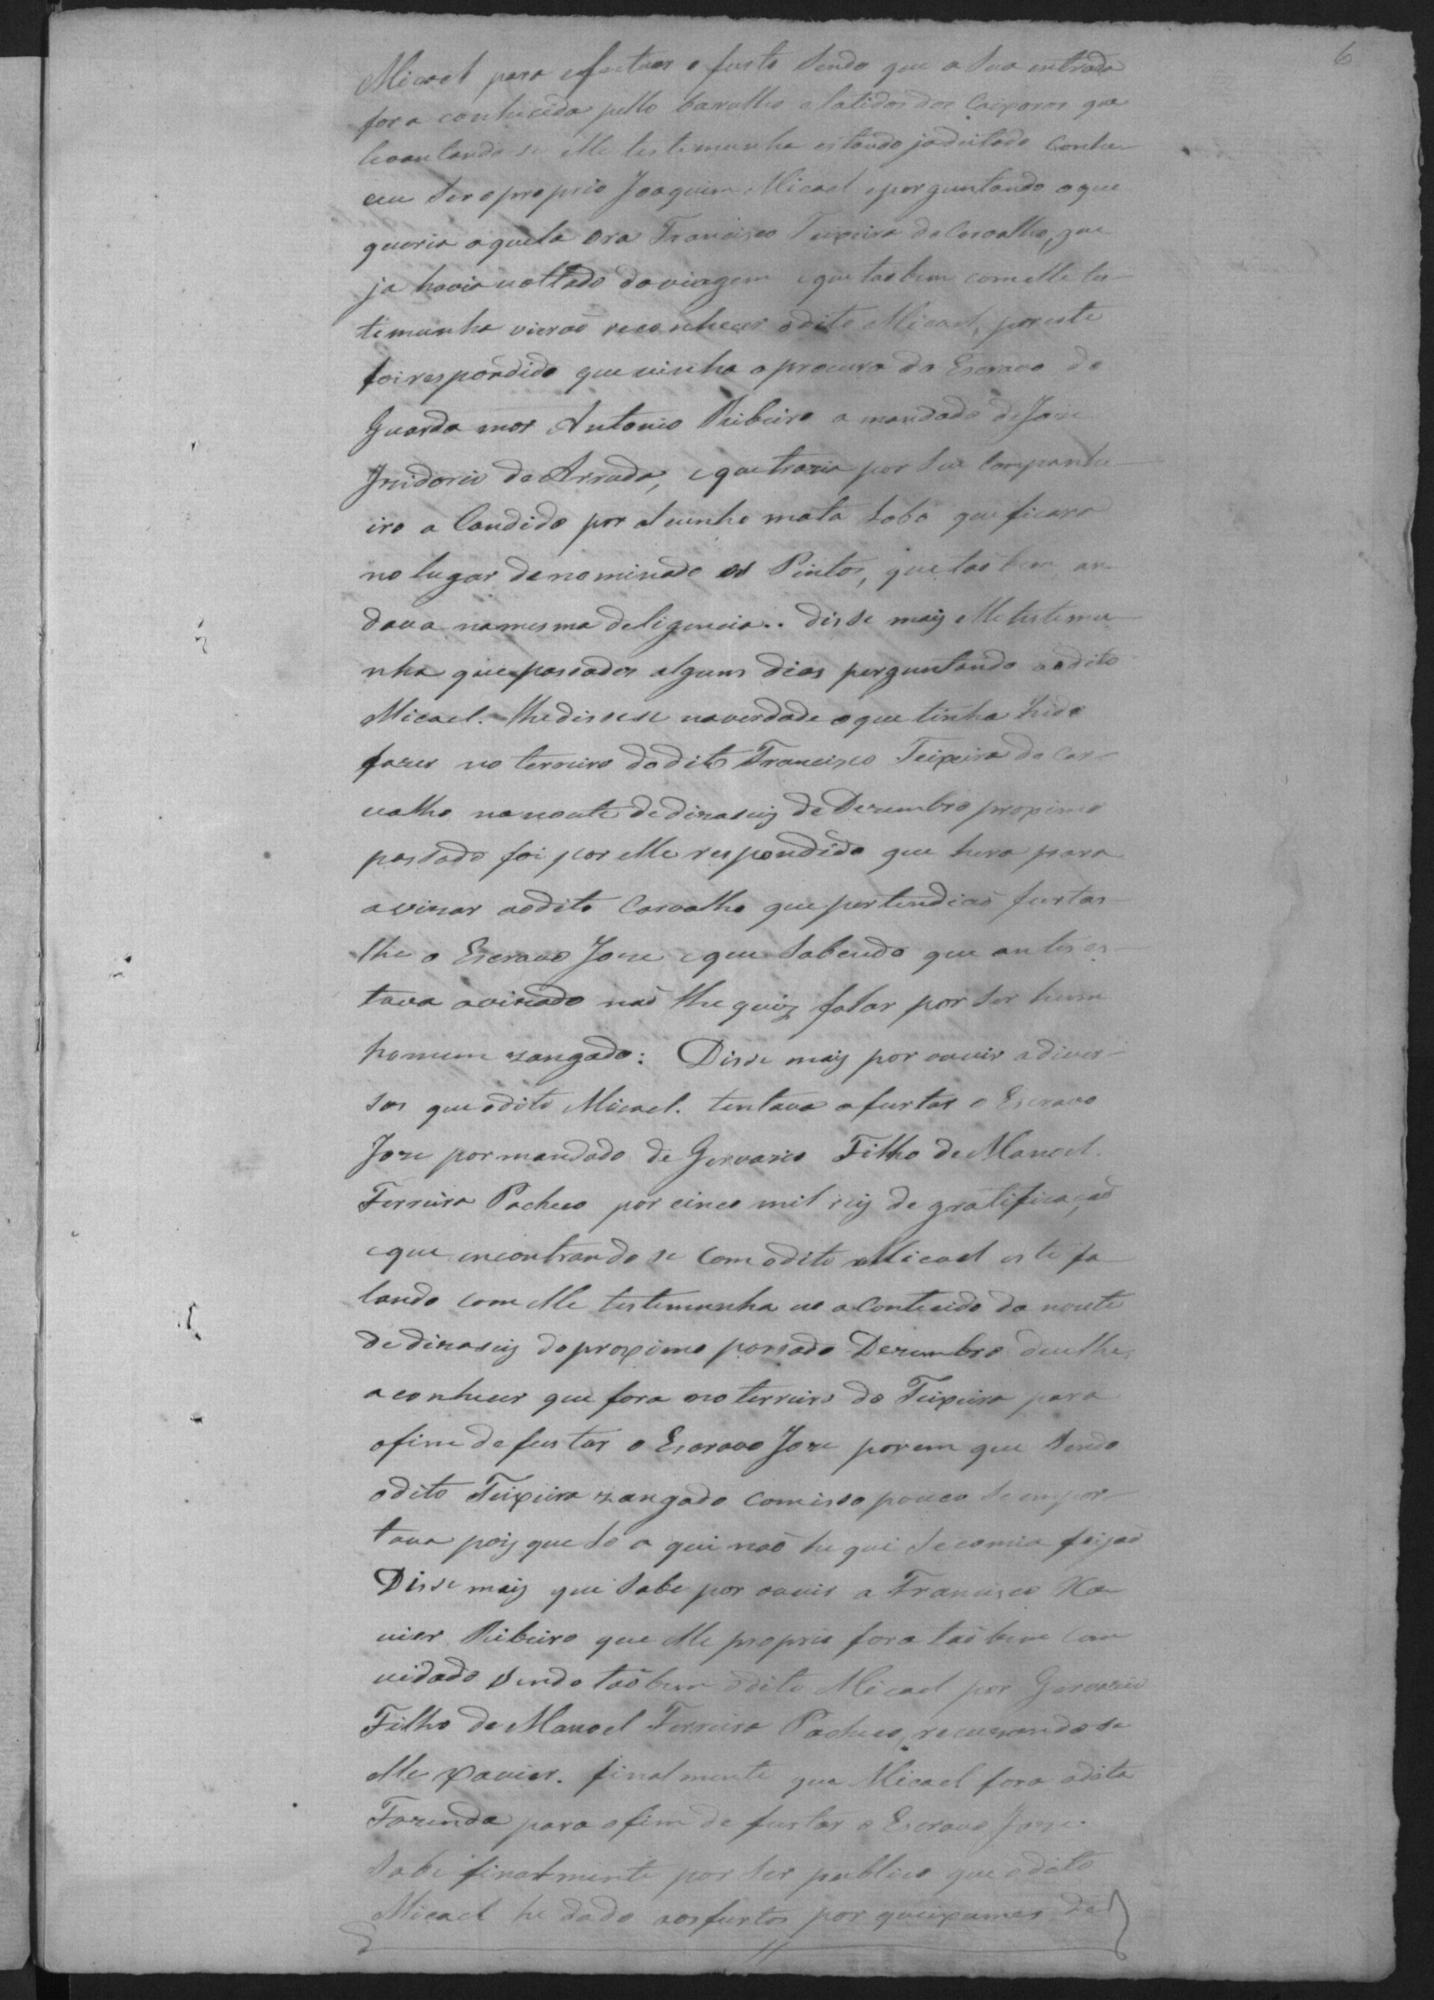 6
Micael para efectuar o furto sendo que a sua entrada
fora conhecida pello barulho e latidos dos Caixoros que
levantando se elle testemunha estando ja deitado conhe-
ceu ser o proprio Joaquim Micael e perguntando o que
queria aquela ora Francisco Teixeira de Carvalho, que
ja havia voltado da viagem e que taobem com elle tes-
timunha vierão reconhecer o dito Micael, por este
foi respondido que vinha a procura do Escravo do
Guarda mor Antonio Ribeiro a mandado de Joze
Izidorio de Arruda, e que trazia por seu companhe-
iro a Candido por alcunho mata Lobo que ficara
no lugar denominado os Pintos, que taobem an-
dava na mesma deligencia.. disse mais elle testemu-
nha que passados alguns dias perguntando ao dito
Micael. lhe disese na verdade o que tinha hido
fazer no terreiro do dito Francisco Teixeira de Car-
valho na noute de dizaseis de Dezembro proximo
passado foi por elle respondido que hera para
avizar ao dito Carvalho que pertendião furtar
lhe o Escravo Joze e que sabendo que antes es-
tava avizado não lhe quiz falar por ser hum
homem zangado: Disse mais por ouvir a diver-
sos que o dito Micael. tentava a furtar o Escravo
Joze por mandado de Gervazio Filho de Manoel.
Ferreira Pacheco por cinco mil reis de gratificação
e que encontrando se com o dito Micael este fa-
lando com elle testemunha no acontecido da noute
de dizaseis do proximo passado Dezembro deu lhe
a conhecer que fora no terreiro do Teixeira para
o fim de furtar o Escravo Joze porem que sendo
o dito Teixeira zangado com isso pouco se empor
tava pois que so a qui não he qui se comia feijão
Disse mais que sabe por ouvir a Francisco Xa-
vier Ribeiro que elle proprio fora taobem con
vidado sendo taobem o dito Micael por Gervazio
Filho de Manoel Ferreira Pacheco, recuzando se
elle Xavier. finalmente que Micael fora a dita
Fazenda para o fim de furtar o Escravo Joze.
Sabe finalmente por ser publico que o dito
Micael he dado aos furtos por queixumes de